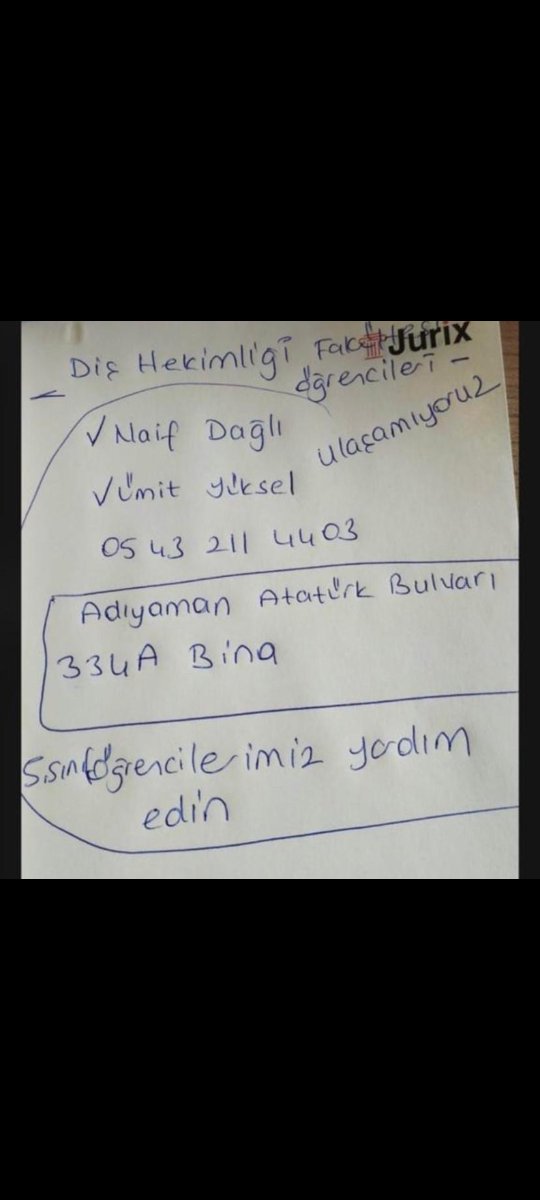 Jurix
- Diş Hekimliği Fakültesi
öğrencileri -
✓ Naif Dağlı
ulaşamıyoruz
✓ Ümit Yüksel
05 43 211 4403
Adıyaman Atatürk Bulvarı
334A Bina
5.sınıf öğrencilerimiz yadım
edin